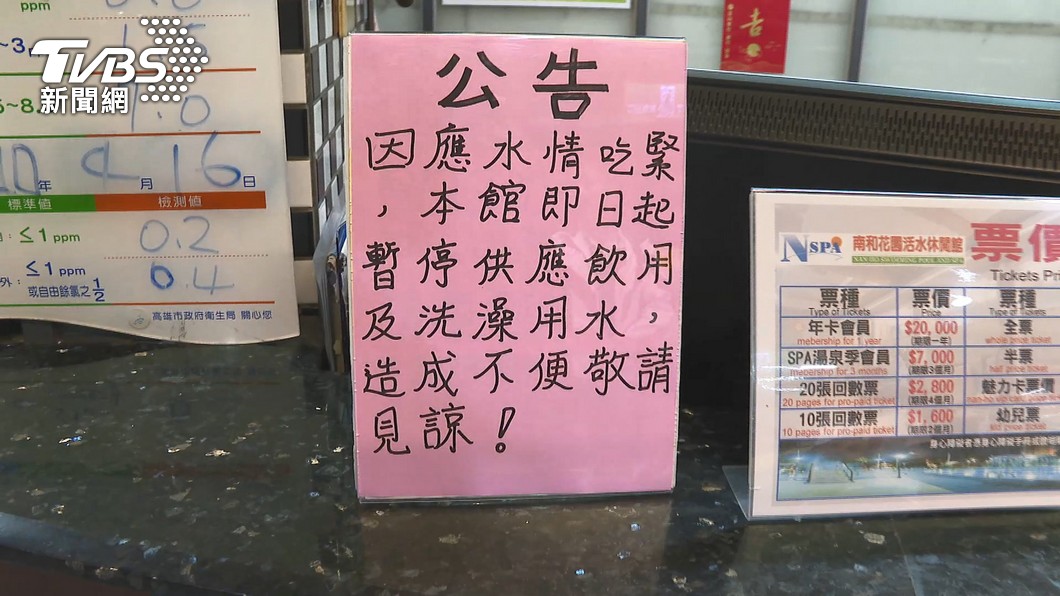 TVBS
新聞網
ppm
年 4 月 16 日
標準值 檢測值
≤1 ppm 0.2
≤1 ppm
或自由餘氯之1/2 0.4
高雄市政府衛生局 關心您
吉
公告
因應水情吃緊
，本館即日起
暫停供應飲用
及洗澡用水，
造成不便敬請
見諒！
NSPA 南和花園活水休閒館
票價
Tickets Pri
票種 票價 票種
Type of Tickets Price Type of Tickets
年卡會員 $20,000 全票
mebership for 1 year (期限一年) whole price ticket
SPA湯泉季會員 $7,000 半票
mebership for 3 months (期限3個月) half price ticket
20張回數票 $2,800 魅力卡票價
20 pages for pro-paid ticket (期限4個月)
10張回數票 $1,600 幼兒票
10 pages for pro-paid ticket (期限2個月)